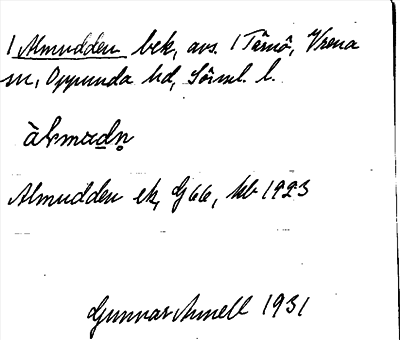 1 Almudden bek, avs. 1 Tärnö, Vrena
sn, Oppunda hd, Sörml. l.
àlmudn̥
Almudden ek, G 66, hb 1923
Gunnar Arnell 1931